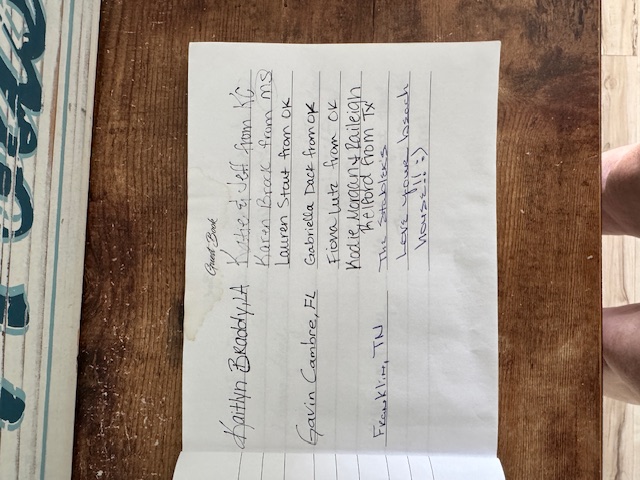 Guest Book
Kaitlyn Braddy, LA
Kathe & Jeff from KC
Karen Brock from MS
Lauren Stout from OK
Gavin Cambre, FL
Gabriella Dack from OK
Fiona Lutz from OK
Kadie, Morgan & Raileigh
Telford from TX
Franklin, TN
The Stablers
Love your beach
house!! :)